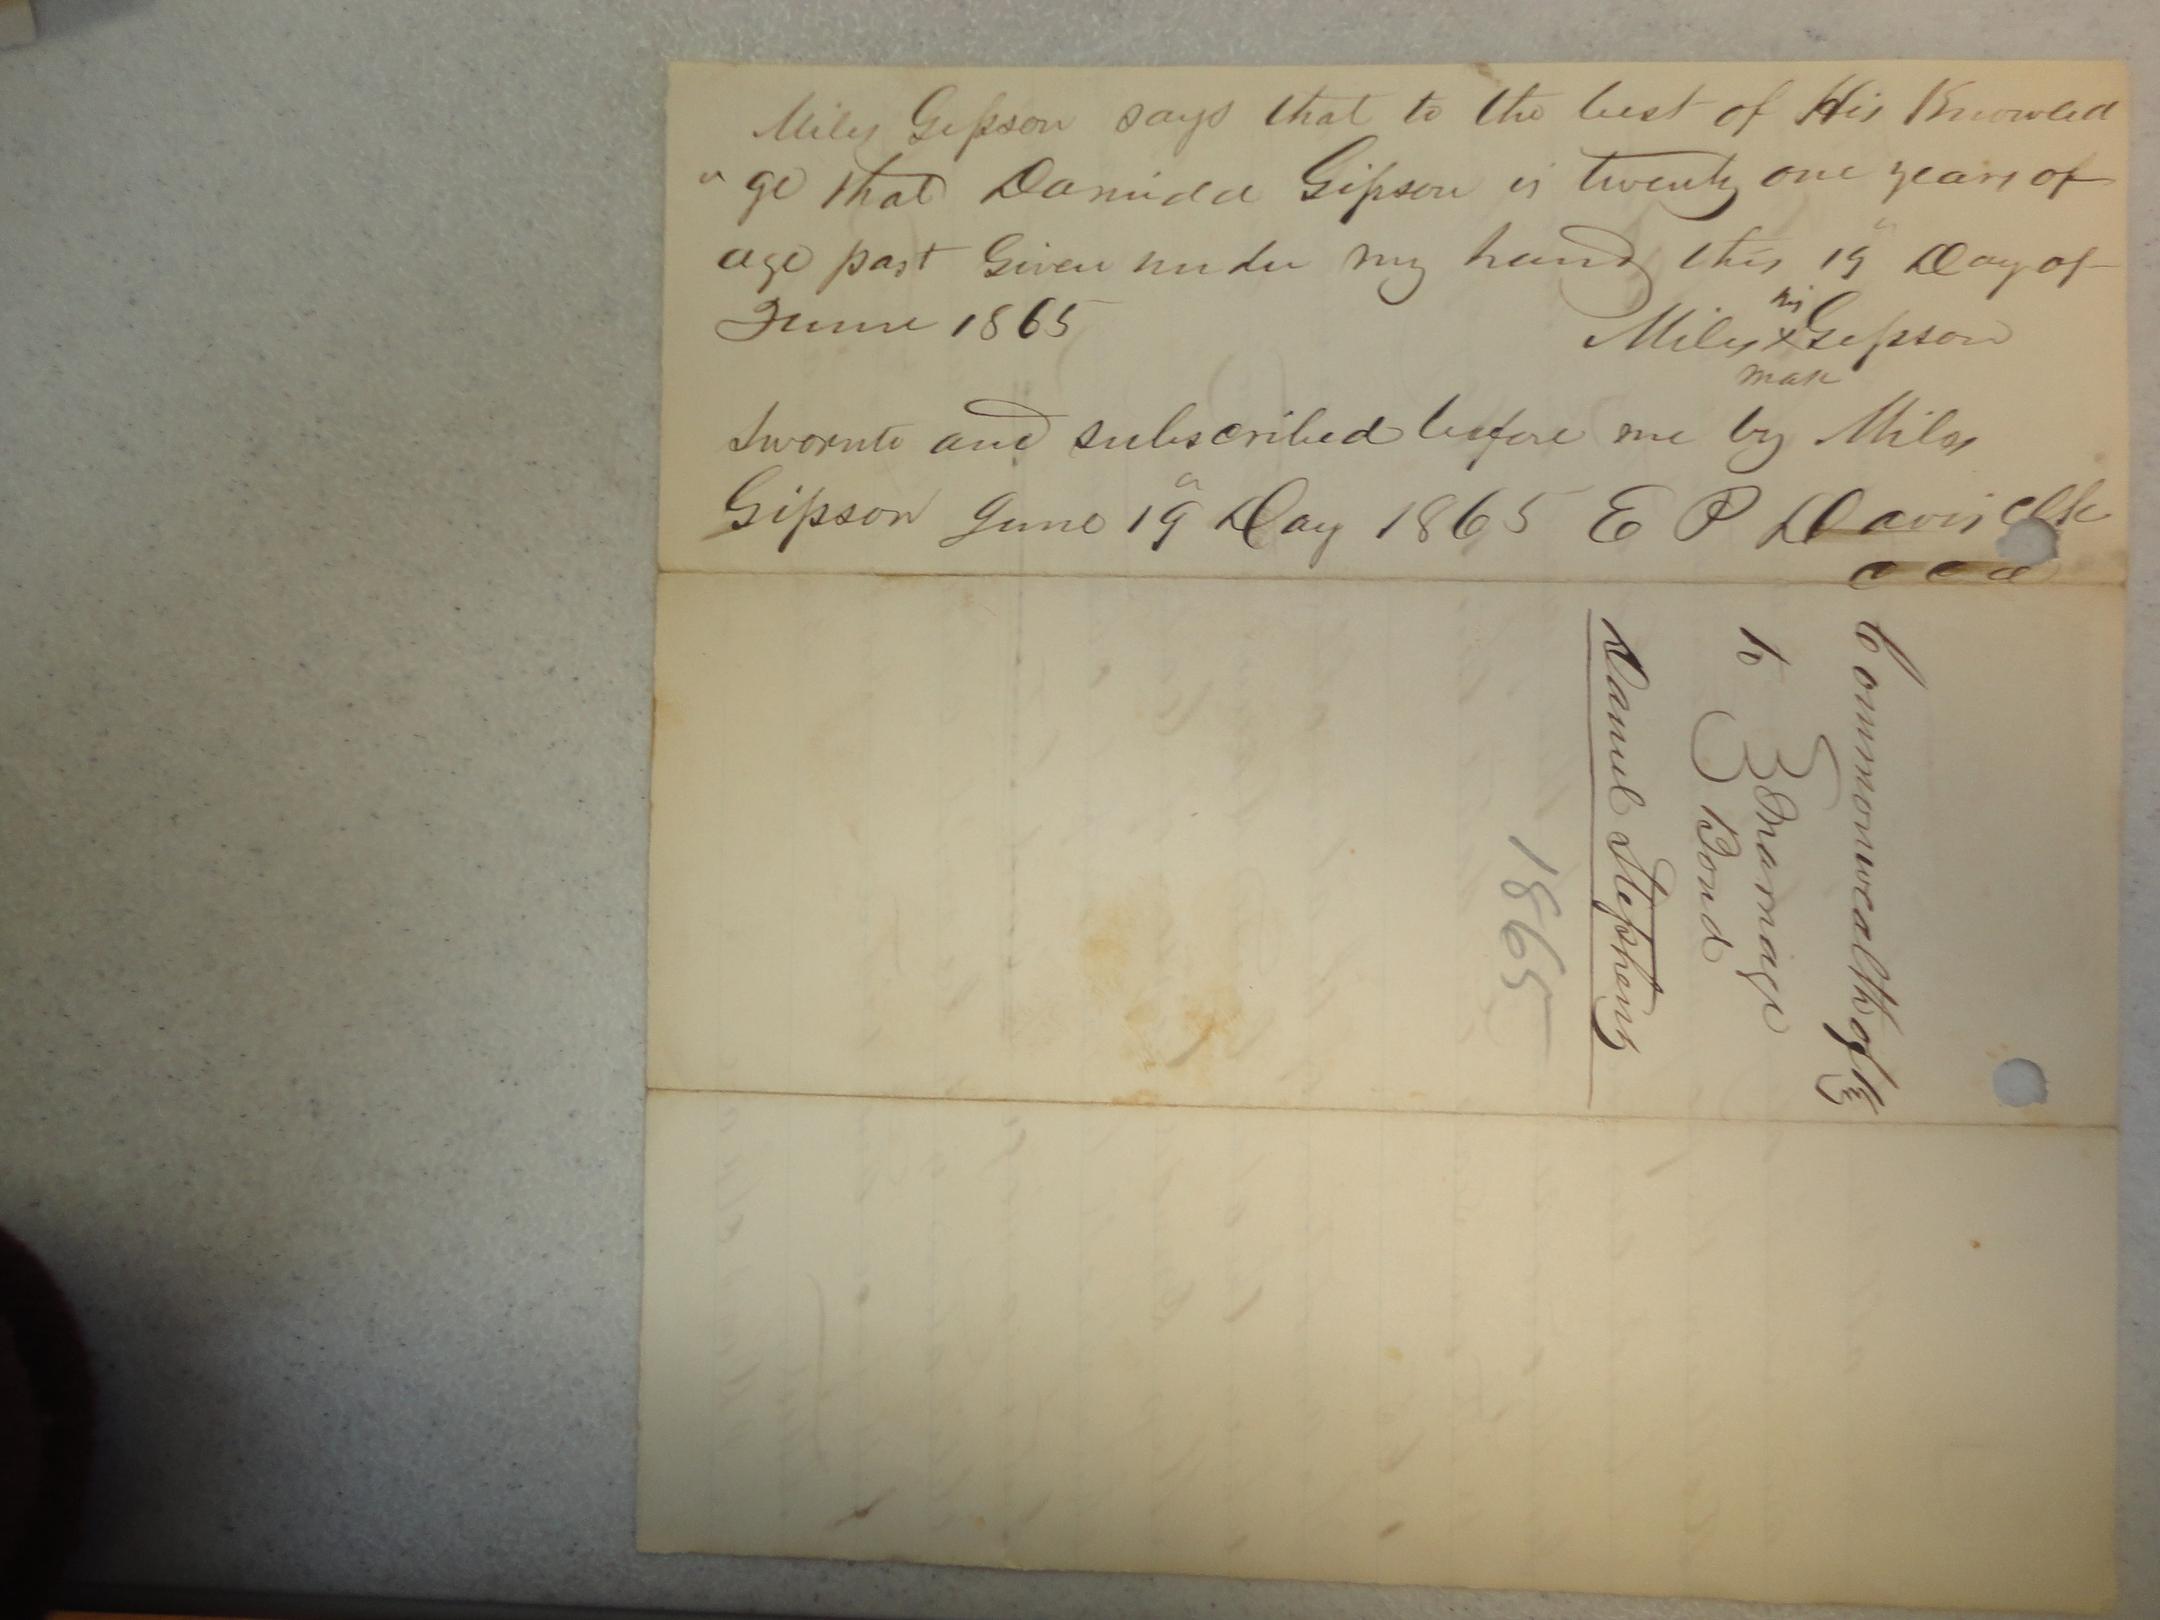 Miles Gipson says that to the best of His Knowled
" ge that Gipson is twenty one years of
age past Given under my hand this 19" Day of
June 1865
his
Miles x Gipson
mark
Swornto and subscribed before me by Miles
Gipson June 19" Day 1865 E P Davis clk
c c c
Commonwealth of Ky
to } Marriage
Bond
Daniel Stephens
1865